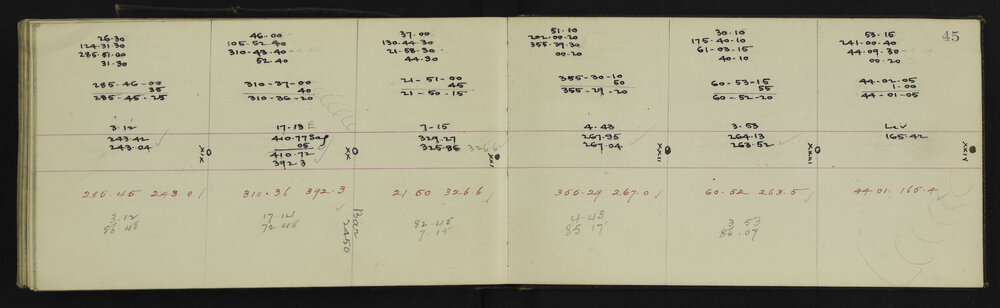 45
26.30
124.31.30
285.51.00
31.30
285-46-00
35
285-45-25
3.12
243.42
243.04
XIX
285.45 243.0
3.12
86.48
46-00
105-52-40
310-43-40
52.40
310-37-00
40
310-36-20
17-13 E
410.77 Sag
05
410.72
392.3
XX
310.36 392.3
17.14
72.48
Bar
2450
37-00
130.44.30
21-58-30
44.30
21-51-00
45
21-50-15
7-15
329.27
325.86 326.6
XXI
21 50 326.6
82 45
7.15
51.10
202.00.20
355.39.30
00.20
355-30-10
50
355-29-20
4-43
267.95
267.04
XXII
355.29 267.0
4 43
85 17
30.10
175-40-10
61-03-15
40-10
60-53-15
55
60-52-20
3.53
264.13
263.52
XXIII
60.52 263.5
3 53
86.07
53-15
241-00-40
44.09.30
00.20
44-02-05
1-00
44-01-05
Lev
165.42
XXIV
44 01 165.4